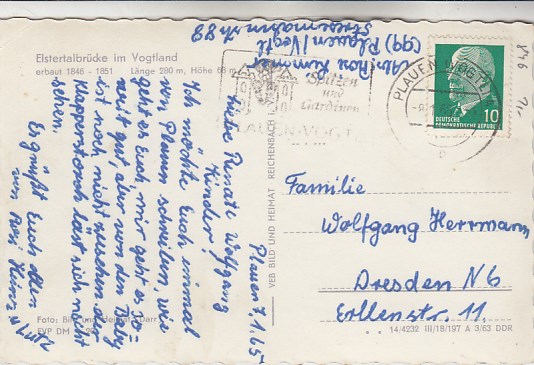 Elstertalbrücke im Vogtland
erbaut 1846 - 1851 Länge 280 m, Höhe 68 m
Abs.: Rosi
(99) Plauen/Vogtl
88
Spitzen
und
Gardinen
PLAUEN-VOGTL
PLAUEN (VOGTL)
10
DEUTSCHE
DEMOKRATISCHE REPUBLIK
Plauen 7.1.65
Liebe Renate, Wolfgang
Kinder!
Ich möchte Euch einmal
von Plauen schreiben, wie
geht es Euch, mir geht es so-
weit gut, aber von den Baby
ist noch nichts zu sehen, der
Klapperstorch läßt sich nicht
sehen.
Es grüßt Euch allen
Heinz u. Lutz
Familie
Wolfgang Herrmann
Dresden N6
Erllenstr. 11
VEB BILD UND HEIMAT REICHENBACH I.
Foto: Bild und Heimat
EVP DM
14/4232 III/18/197 A 3/63 DDR